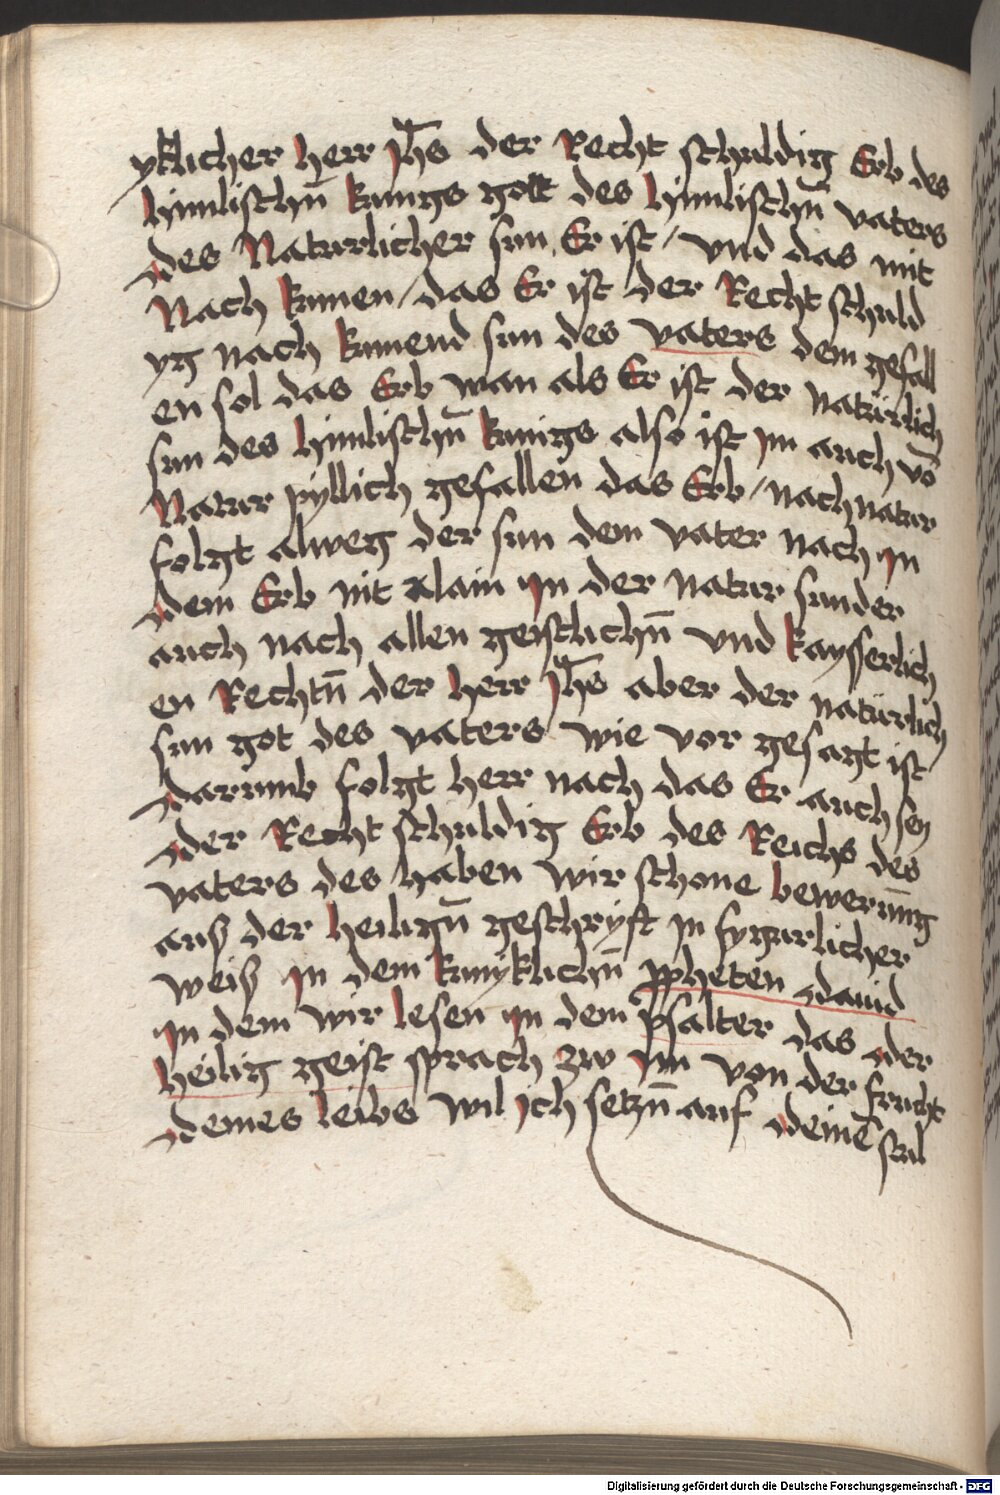 yklicher herr Jh̄s der Recht schuldig Erb des
himlischn̄ kunigs gott des himlischn̄ vaters
des Naturlicher sun Er ist / vnd das mit
Nach kumen / das Er ist der Recht schuld
yg nach kumend sun des vaters dem gefall
en sol das Erb wan als Er ist der natürlich
sun des himlischn̄ kunigs also ist im auch vō
Natur pyllich gefallen das Erb / nach natur
folgt alweg der sun dem vater nach in
dem Erb nit alain in der natur sunder
auch nach allen geistlichn̄ vnd kaysserlich
en Rechtn̄ der herr Jh̄s aber der natürlich
sun got des vaters wie vor gesagt ist
darumb folgt herr nach das Er auch sey
der Recht schuldig Erb des Reichs des
vaters des haben wir schone bewerūng
auß der heilign̄ geschryft in fygurlicher
weiß in dem kunyklichn̄ ppheten dauid
in dem wir lesen in dem psalter das der
heilig geist sprach zw im von der frucht
deines leibs wil ich setzn̄ auf deinē stul
Digitalisierung gefördert durch die Deutsche Forschungsgemeinschaft - DFG